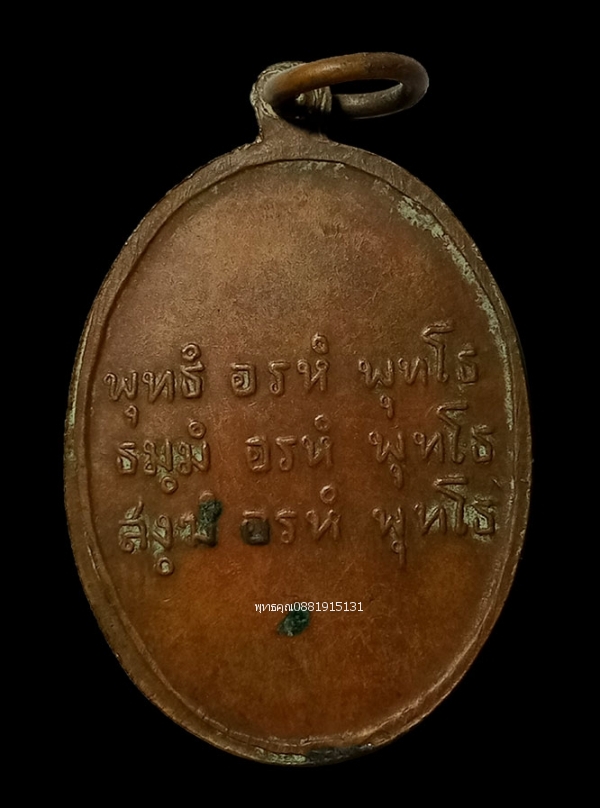 พุทธํ อรหํ พุทโธ
ธมฺมํ อรหํ พุทโธ
สงฺฆํ อรหํ พุทโธ
พุทธคุณ0881915131